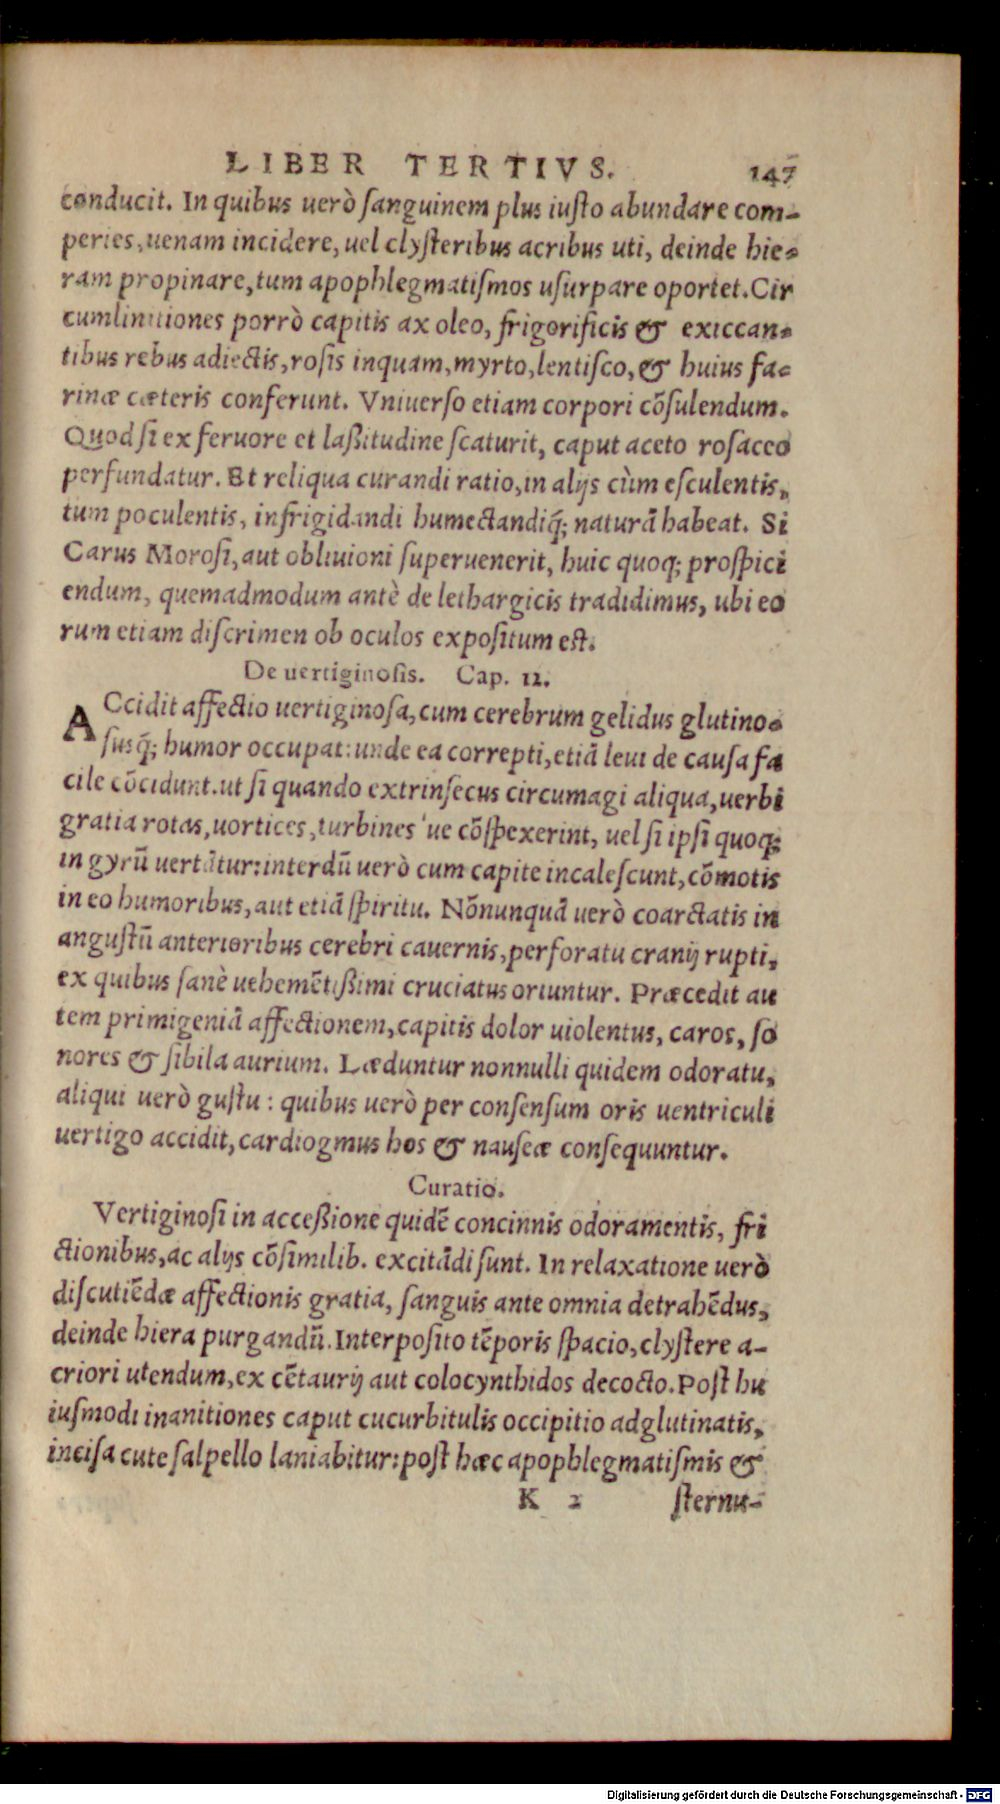 LIBER TERTIVS. 147
conducit. In quibus uerò ſanguinem plus iuſto abundare com-
peries, uenam incidere, uel clyſteribus acribus uti, deinde hie-
ram propinare, tum apophlegmatiſmos uſurpare oportet. Cir
cumlinitiones porrò capitis ax oleo, frigorificis & exiccan-
tibus rebus adiectis, roſis inquam, myrto, lentiſco, & huius fa-
rinæ cæteris conferunt. Vniuerſo etiam corpori cõſulendum.
Quod ſi ex feruore et laßitudine ſcaturit, caput aceto roſaceo
perfundatur. Et reliqua curandi ratio, in alijs cùm eſculentis,
tum poculentis, infrigidandi humectandiq́; naturā habeat. Si
Carus Moroſi, aut obliuioni ſuperuenerit, huic quoq; proſpici
endum, quemadmodum antè de lethargicis tradidimus, ubi eo
rum etiam diſcrimen ob oculos expoſitum eſt.
De uertiginoſis. Cap. 12.
ACcidit affectio uertiginoſa, cum cerebrum gelidus glutino-
ſusq́; humor occupat: unde ea correpti, etiā leui de cauſa fa
cile cõcidunt. ut ſi quando extrinſecus circumagi aliqua, uerbi
gratia rotas, uortices, turbines 've cõſpexerint, uel ſi ipſi quoq;
in gyrũ uertātur: interdũ uerò cum capite incaleſcunt, cõmotis
in eo humoribus, aut etiā ſpiritu. Nõnunquā uerò coarctatis in
anguſtũ anterioribus cerebri cauernis, perforatu cranij rupti,
ex quibus ſanè uehemẽtißimi cruciatus oriuntur. Præcedit au
tem primigeniā affectionem, capitis dolor uiolentus, caros, ſo
nores & ſibila aurium. Læduntur nonnulli quidem odoratu,
aliqui uerò guſtu: quibus uerò per conſenſum oris uentriculi
uertigo accidit, cardiogmus hos & nauſeæ conſequuntur.
Curatio.
Vertiginoſi in acceßione quidẽ concinnis odoramentis, fri
ctionibus, ac alijs cõſimilib. excitādi ſunt. In relaxatione uerò
diſcutiẽdæ affectionis gratia, ſanguis ante omnia detrahẽdus,
deinde hiera purgandũ. Interpoſito tẽporis ſpacio, clyſtere a-
criori utendum, ex cẽtaurij aut colocynthidos decocto. Poſt hu
iuſmodi inanitiones caput cucurbitulis occipitio adglutinatis,
inciſa cute ſalpello laniabitur: poſt hæc apophlegmatiſmis &
K 2 ſternu-
Digitalisierung gefördert durch die Deutsche Forschungsgemeinschaft - DFG